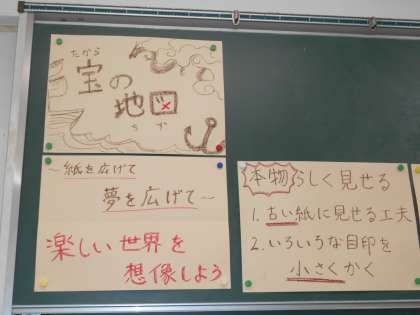 たから
宝の
地図
ちず
〜紙を広げて
夢を広げて〜
楽しい世界を
想像しよう
本物らしく見せる
1.古い紙に見せる工夫
2.いろいろな目印を
小さくかく